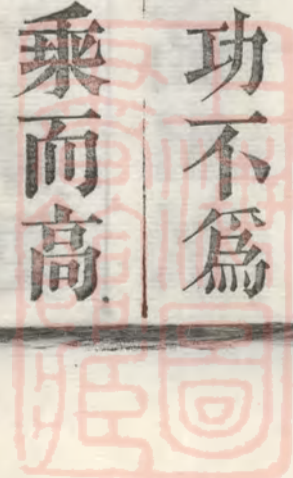 功不爲
乘而高